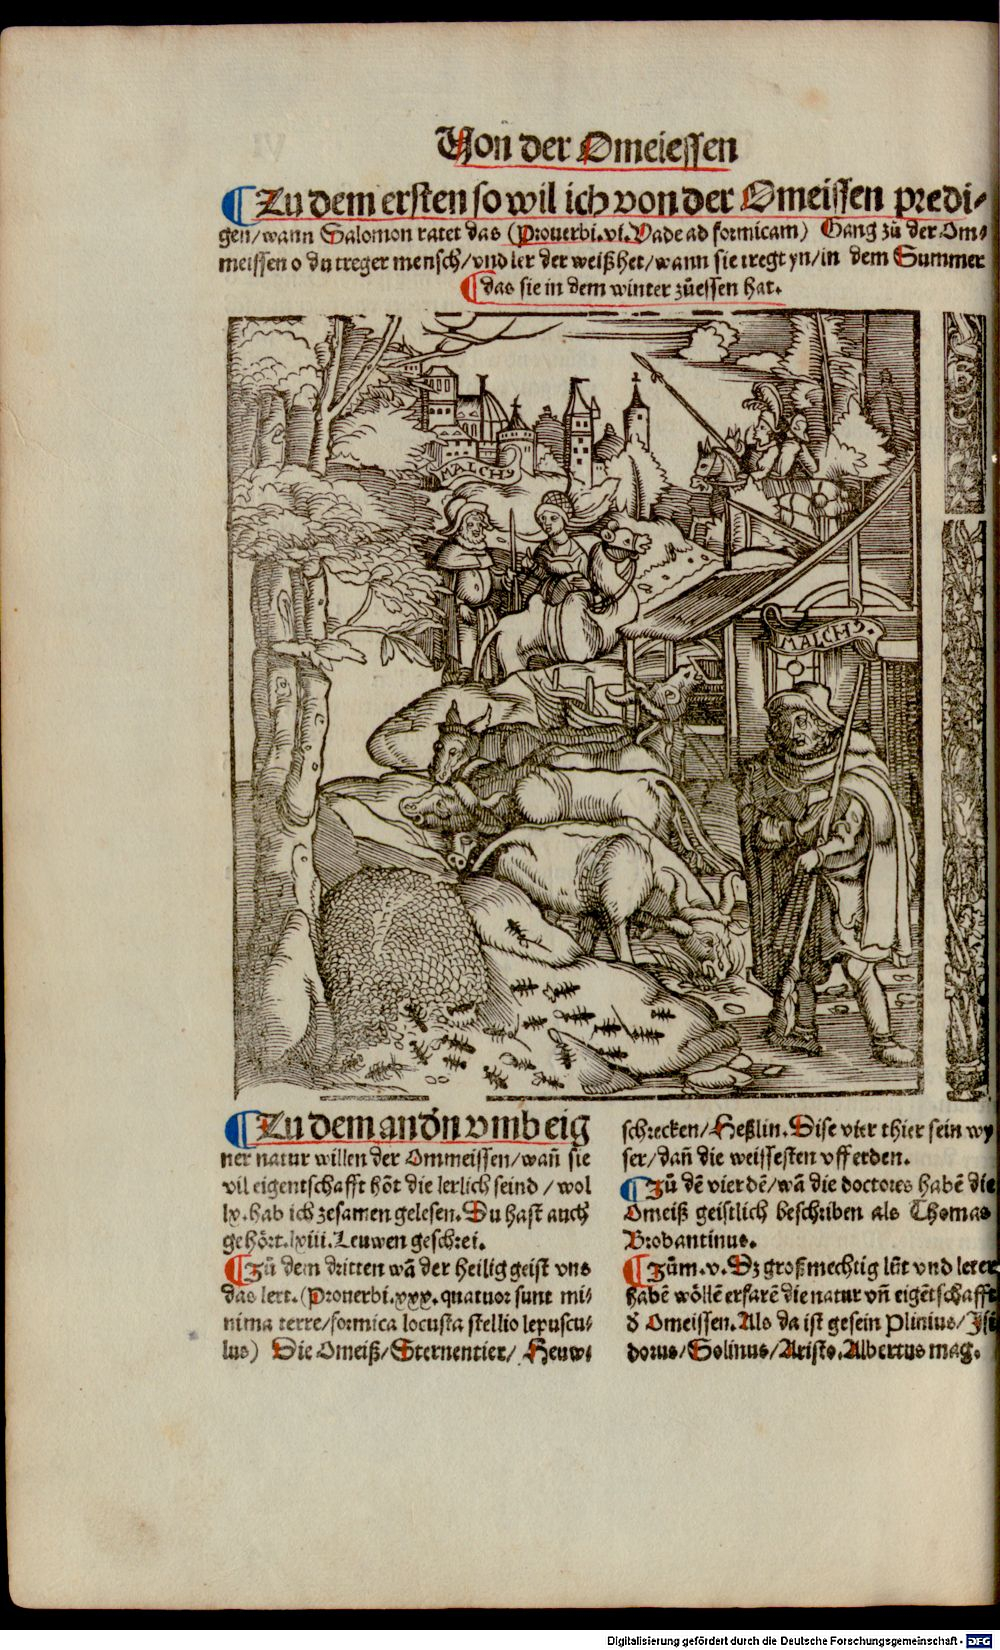 Von der Omeiessen
Zu dem ersten so wil ich von der Omeissen predi⸗
gen/wann Salomon ratet das (Prouerbi.vi. Vade ad formicam) Gang zů der Om⸗
meissen o du treger mensch/vnd ler der weißhet/wann sie tregt yn/in dem Summer
das sie in dem winter zůessen hat.
MALCHꝰ
MALCHꝰ.
Zu dem andn̄ vmb eig
ner natur willen der Ommeissen/wañ sie
vil eigentschafft hōt die lerlich seind/wol
lx.hab ich zesamen gelesen. Du hast auch
gehört.lxiii.Leuwen geschrei.
Zů dem dritten wā der heilig geist vns
das lert.(Prouerbi.xxx.quatuor sunt mi⸗
nima terre/formica locusta stellio lepuscu⸗
lus) Die Omeiß/Sternentier/Heuw⸗
schrecken/Heßlin. Dise vier thier sein wy
ser/dañ die weissesten vff erden.
Zů dē vierdē/wā die doctores habē die
Omeiß geistlich beschriben als Thomas
Brobantinus.
Zům.v. Dz großmechtig lüt vnd lerer
habē wöllē erfarē die natur vñ eigētschafft
d̄ Omeissen. Als da ist gesein Plinius/Isi
dorus/Solinus/Aristo. Albertus mag.
Digitalisierung gefördert durch die Deutsche Forschungsgemeinschaft - DFG